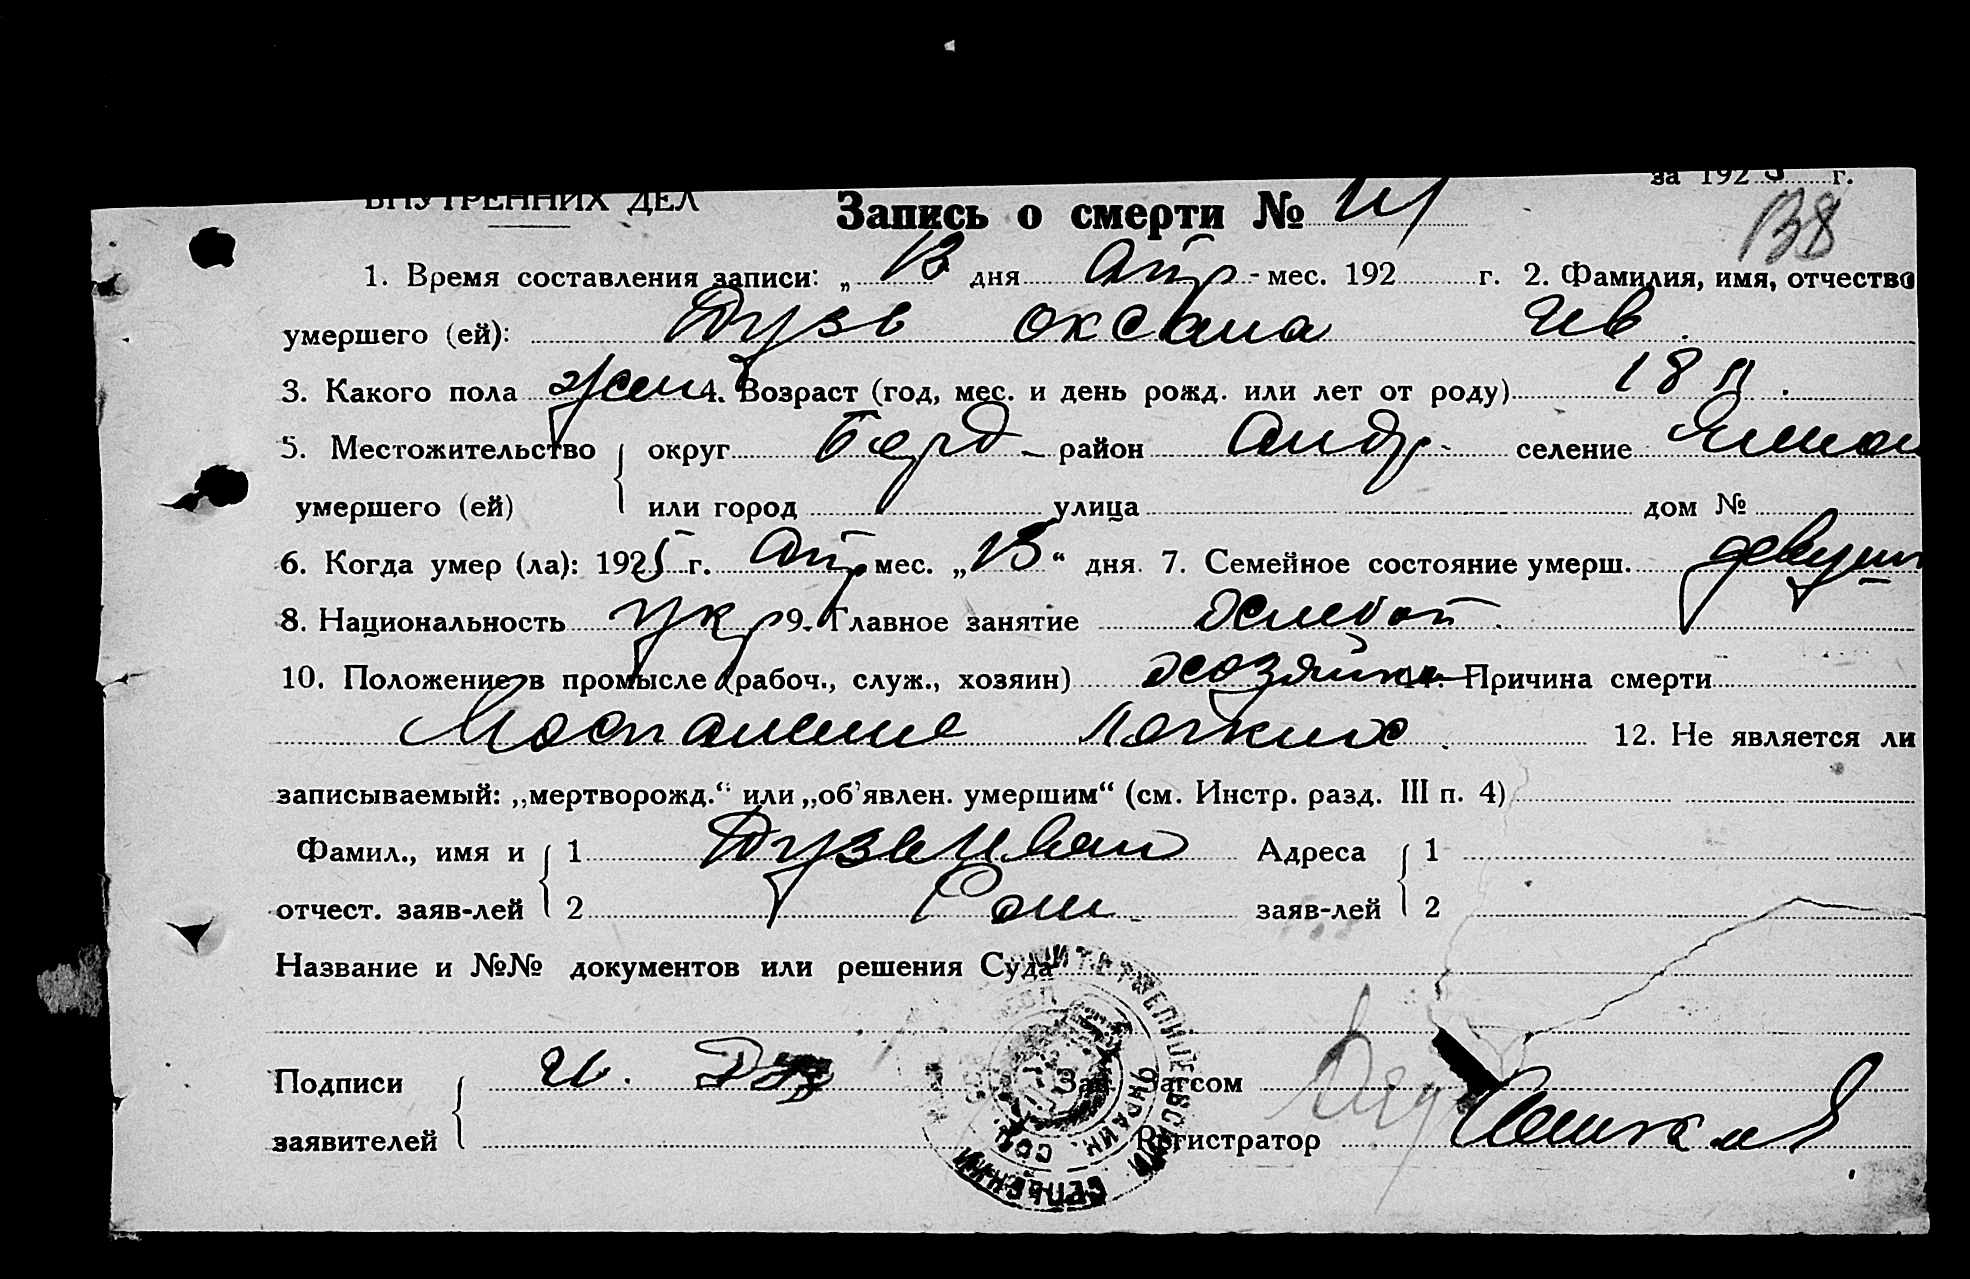 за 1925 г.
ВНУТРЕННИХ ДЕЛ
Запись о смерти №
138
1. Время составления записи: „ 13 дня Апр - мес. 192 г. 2. Фамилия, имя, отчество
умершего (ей): Дузь Оксана Ив.
3. Какого пола жен 4. Возраст (год, мес. и день рожд. или лет от роду) 18 л.
5. Местожительство округ Берд - район Андр - селение
умершего (ей) или город улица дом №
6. Когда умер (ла): 1925 г. Апр мес. „13“ дня. 7. Семейное состояние умерш. девуш
8. Национальность укр 9. Главное занятие хлебоп.
10. Положение в промысле (рабоч., служ., хозяин) хозяин 11. Причина смерти
Воспаление легких. 12. Не является ли
записываемый: „мертворожд.“ или „об'явлен. умершим“ (см. Инстр. разд. III п. 4)
Фамил., имя и 1 Дузь Иван Адреса 1
отчест. заяв-лей 2 заяв-лей 2
Название и №№ документов или решения Суда
Подписи И. Дуз Зав. Загсом
заявителей Регистратор